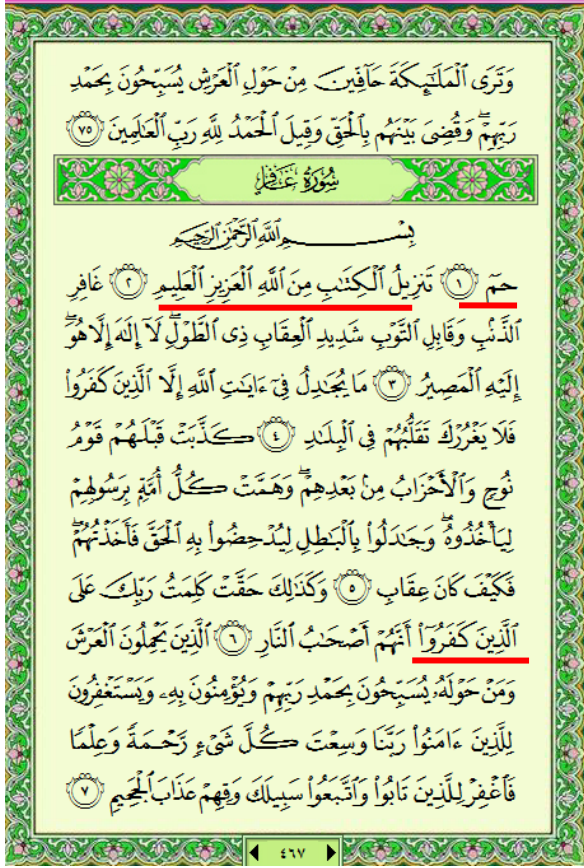 وَتَرَى ٱلْمَلَٰٓئِكَةَ حَآفِّينَ مِنْ حَوْلِ ٱلْعَرْشِ يُسَبِّحُونَ بِحَمْدِ
رَبِّهِمْ ۖ وَقُضِىَ بَيْنَهُم بِٱلْحَقِّ وَقِيلَ ٱلْحَمْدُ لِلَّهِ رَبِّ ٱلْعَٰلَمِينَ ٧٥
سُورَةُ غَافِرٍ
بِسْمِ ٱللَّهِ ٱلرَّحْمَٰنِ ٱلرَّحِيمِ
حمٓ ١ تَنزِيلُ ٱلْكِتَٰبِ مِنَ ٱللَّهِ ٱلْعَزِيزِ ٱلْعَلِيمِ ٢ غَافِرِ
ٱلذَّنۢبِ وَقَابِلِ ٱلتَّوْبِ شَدِيدِ ٱلْعِقَابِ ذِى ٱلطَّوْلِ ۖ لَآ إِلَٰهَ إِلَّا هُوَ ۖ
إِلَيْهِ ٱلْمَصِيرُ ٣ مَا يُجَٰدِلُ فِىٓ ءَايَٰتِ ٱللَّهِ إِلَّا ٱلَّذِينَ كَفَرُوا۟
فَلَا يَغْرُرْكَ تَقَلُّبُهُمْ فِى ٱلْبِلَٰدِ ٤ كَذَّبَتْ قَبْلَهُمْ قَوْمُ
نُوحٍ وَٱلْأَحْزَابُ مِنۢ بَعْدِهِمْ ۖ وَهَمَّتْ كُلُّ أُمَّةٍۭ بِرَسُولِهِمْ
لِيَأْخُذُوهُ ۖ وَجَٰدَلُوا۟ بِٱلْبَٰطِلِ لِيُدْحِضُوا۟ بِهِ ٱلْحَقَّ فَأَخَذْتُهُمْ ۖ
فَكَيْفَ كَانَ عِقَابِ ٥ وَكَذَٰلِكَ حَقَّتْ كَلِمَتُ رَبِّكَ عَلَى
ٱلَّذِينَ كَفَرُوٓا۟ أَنَّهُمْ أَصْحَٰبُ ٱلنَّارِ ٦ ٱلَّذِينَ يَحْمِلُونَ ٱلْعَرْشَ
وَمَنْ حَوْلَهُۥ يُسَبِّحُونَ بِحَمْدِ رَبِّهِمْ وَيُؤْمِنُونَ بِهِۦ وَيَسْتَغْفِرُونَ
لِلَّذِينَ ءَامَنُوا۟ رَبَّنَا وَسِعْتَ كُلَّ شَىْءٍ رَّحْمَةً وَعِلْمًا
فَٱغْفِرْ لِلَّذِينَ تَابُوا۟ وَٱتَّبَعُوا۟ سَبِيلَكَ وَقِهِمْ عَذَابَ ٱلْجَحِيمِ ٧
٤٦٧